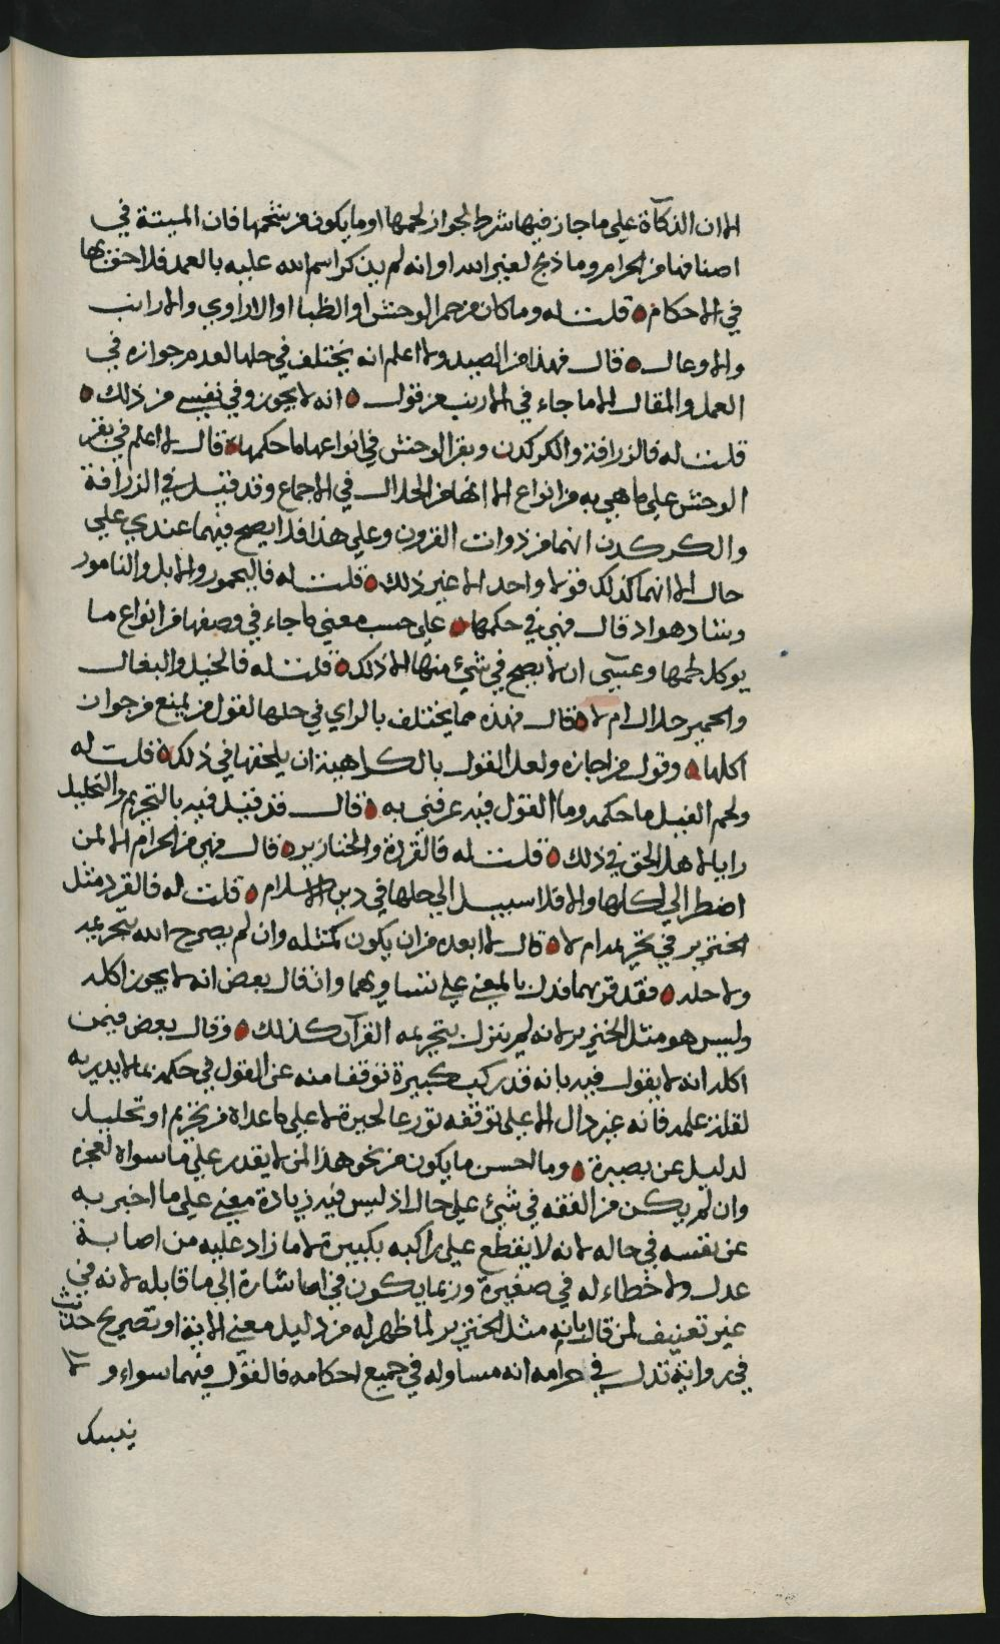 الا ان الذكاة على ما جاز فيها شرط لجواز لحمها او ما يكون من شحمها فان الميتة في
اصنافها من الحرام وما ذبح لغير الله او انه لم يذكر اسم الله عليه بالعمد فلاحق بها
في الاحكام ۞ قلت له وما كان من حمر الوحش او الظبا او الاراوي والارانب
والاوعال ۞ قال فهذا من الصيد ولا اعلم انه يختلف في حلها لعدم جوازه في
العمل والمقال الا ما جاء في الارنب من قول ۞ انه لا يجوز وفي نفسي من ذلك ۞
قلت له فالزرافة والكركدن وبقر الوحش في انواعها ما حكمها ۞ قال لا اعلم في بقر
الوحش على ما هي به من انواع الا انها من الحلال في الاجماع وقد قيل في الزرافة
والكركدن انهما من ذوات القرون وعلى هذا فلا يصح فيهما عندي على
حال الا انهما كذلك قولا واحدا لا غير ذلك ۞ قلت له فاليحمور والابل والنامور
وشادهواد قال فهي في حكمها ۞ على حسب معنى ما جاء في وصفها من انواع ما
يوكل لحمها وعسى ان لا يصح في شيء منها الا ذلك ۞ قلت له فالخيل والبغال
والحمير حلال ام لا ۞ قال فهذه مما يختلف بالراي في حلها لقول من يمنع من جوان
اكلها ۞ وقول من اجازه ولعل القول بالكراهية ان يلحقها في ذلك ۞ قلت له
ولحم الفيل ما حكمه وما القول فيه عرفني به ۞ قال قد قيل فيه بالتحريم والتحليل
رايا لاهل الحق في ذلك ۞ قلت له فالقردة والخنازير ۞ قال فهي من الحرام الا لمن
اضطر الى اكلها والا فلا سبيل الى حلها في دين الاسلام ۞ قلت له فالقرد مثل
الخنزير في تحريمه ام لا ۞ قال لا ابعده من ان يكون كمثله وان لم يصرح الله بتحريمه
ولا حله ۞ فقد قرنهما فدل بالمعنى على تساويهما وان قال بعض انه لا يجوز اكله
وليس هو مثل الخنزير لانه لم ينزل بتحريمه القرآن كذلك ۞ وقال بعض فيمن
اكله انه لا يقول فيه بانه قد ركب كبيرة توقفا منه عن القول في حكمه بما لا يدريه
لقلة علمه فانه غير دال الا على توقفه تورعا لحيرة لا على ما عداه من تحريم او تحليل
لدليل عن بصيرة ۞ وما احسن ما يكون من نحو هذا لمن لا يقدر على ما سواه لعجزه
وان لم يكن من الفقه في شيء على حال اذ ليس فيه زيادة معنى على ما اخبر به
عن نفسه في حاله لانه لا يقطع على راكبه بكبيرة لا ما زاد عليه من اصابة
عدل ولا خطاء له في صغيرة وربما يكون في اشارة الى ما قابله لانه في
غير تعنيف لمن قال بانه مثل الخنزير لما ظهر له من دليل معنى الآية او تصريح حديث
في رواية تدل في حرامه انه مساو له في جميع احكامه فالقول فيهما سواء ولا